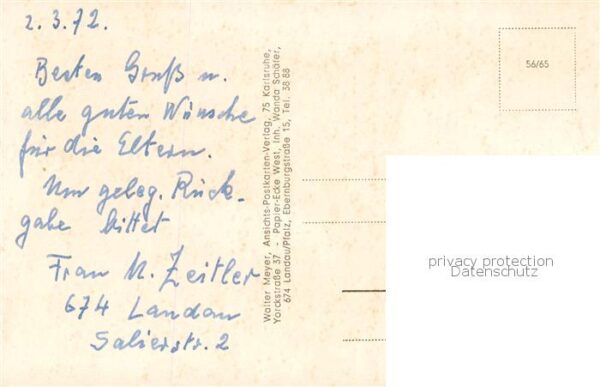 2.3.72.
Besten Gruß u.
alle guten Wünsche
für die Eltern.
Um geleg. Rück-
gabe bittet
Frau M. Zeitler
674 Landau
Salierstr. 2
Walter Meyer, Ansichts-Postkarten-Verlag, 75 Karlsruhe,
Yorckstraße 37 - Papier-Ecke West, Inh. Wanda Schäfer,
674 Landau/Pfalz, Ebernburgstraße 15, Tel. 38 88
56/65
privacy protection
Datenschutz